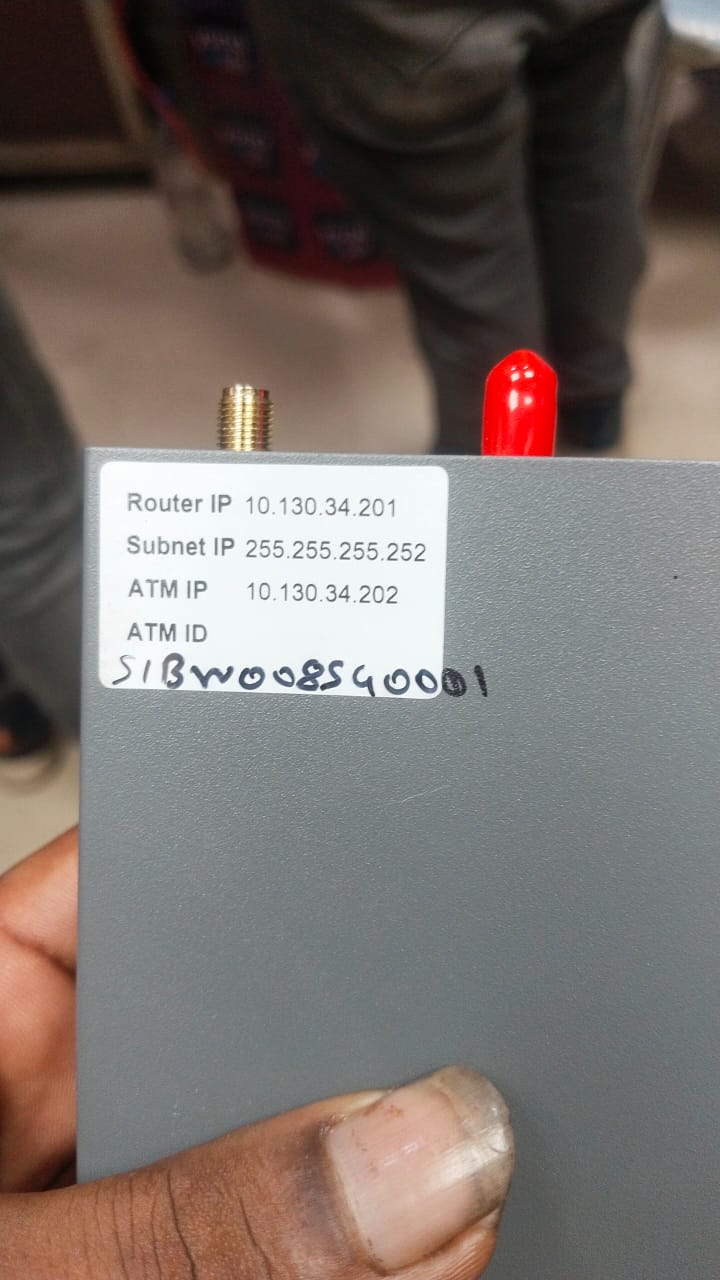 Router IP 10.130.34.201
Subnet IP 255.255.255.252
ATM IP 10.130.34.202
ATM ID
SIBW008540001